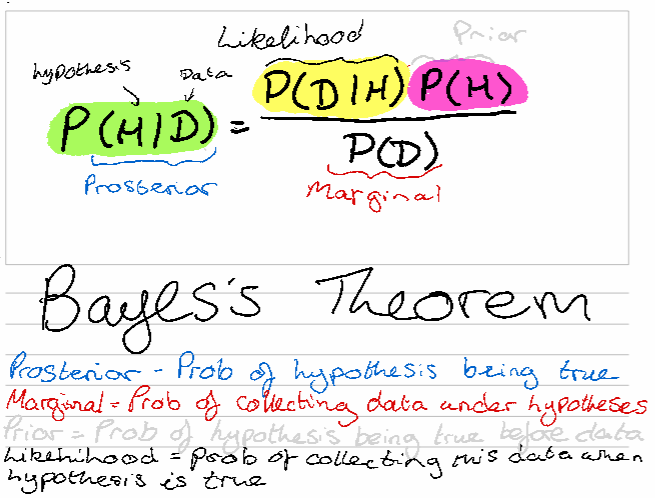 Likelihood
Prior
hypothesis
Data
P(H|D) = P(D|H) P(H)
P(D)
Prosterior
Marginal
Bayes's Theorem
Prosterior - Prob of hypothesis being true
Marginal = Prob of collecting data under hypotheses
Prior = Prob of hypothesis being true before data
Likehihood = Prob of collecting this data when
hypothesis is true